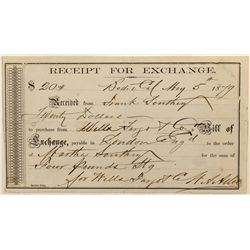 RECEIPT FOR EXCHANGE.
$ 20 Bodie Cal May 5th 1879
Received from Frank Southey
Twenty Dollars
to purchase from Wells Fargo & Co Bill of
Exchange, payable in London Eng
Martha Southey to the order
of for the sum of
Four pounds
for Wells Fargo & Co